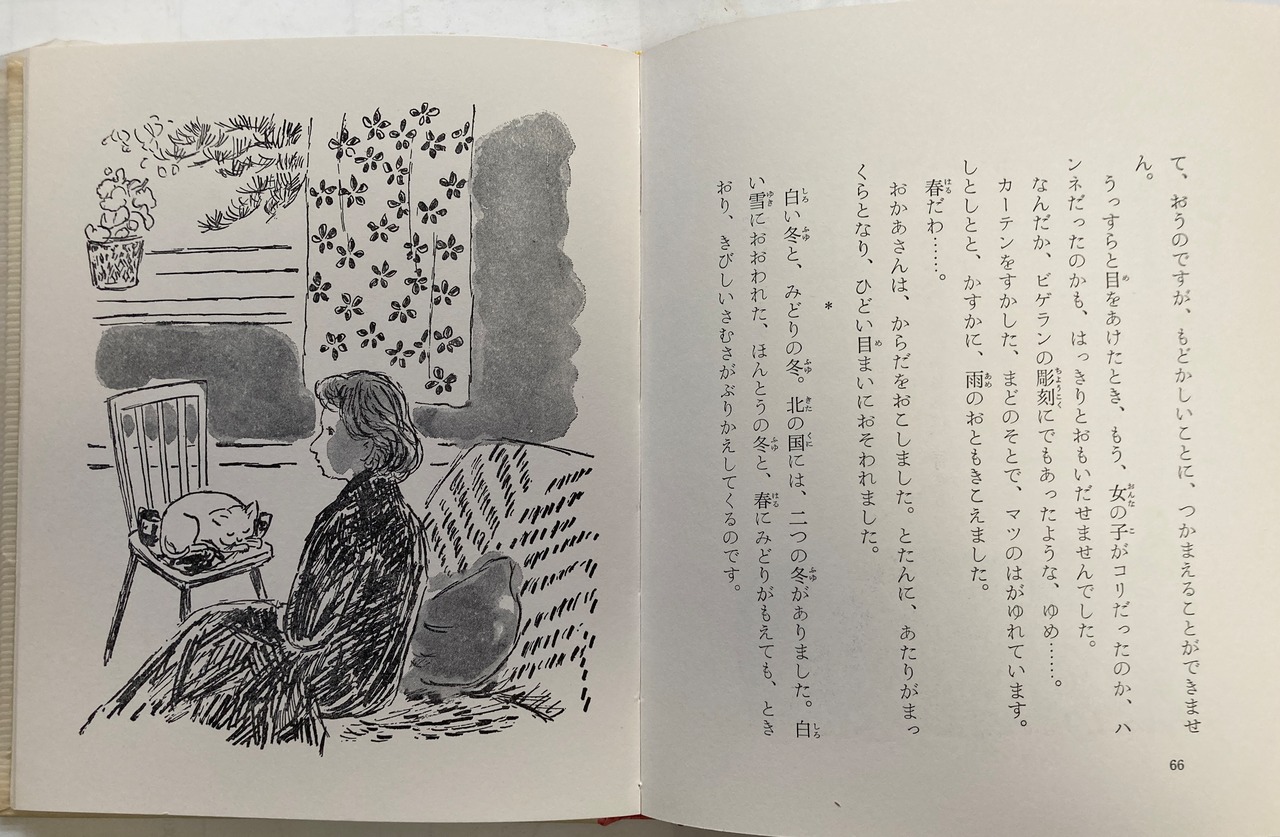 て、おうのですが、もどかしいことに、つかまえることができませ
ん。
うっすらと目をあけたとき、もう、女の子がコリだったのか、ハ
ンネだったのかも、はっきりとおもいだせませんでした。
なんだか、ビゲランの彫刻にでもあったような、ゆめ……。
カーテンをすかした、まどのそとで、マツのはがゆれています。
しとしとと、かすかに、雨のおともきこえました。
春だわ……。
おかあさんは、からだをおこしました。とたんに、あたりがまっ
くらとなり、ひどい目まいにおそわれました。
*
白い冬と、みどりの冬。北の国には、二つの冬がありました。白
い雪におおわれた、ほんとうの冬と、春にみどりがもえても、とき
おり、きびしいさむさがぶりかえしてくるのです。
66